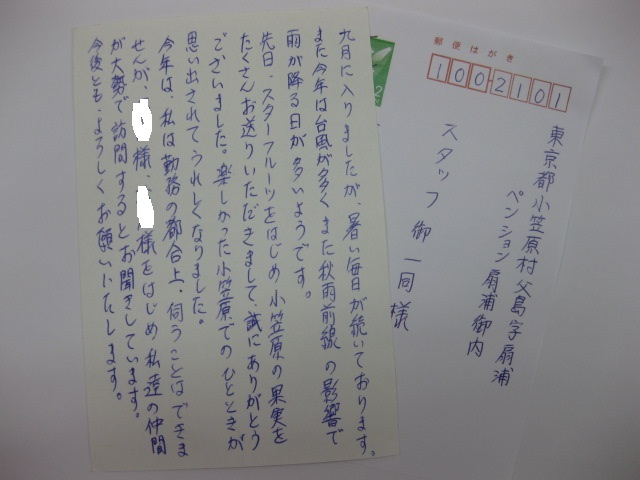 九月に入りましたが、暑い毎日が続いております。
また今年は台風が多く、また秋雨前線の影響で
雨が降る日が多いようです。
先日、スターフルーツをはじめ小笠原の果実を
たくさんお送りいただきまして、誠にありがとう
ございました。楽しかった小笠原でのひとときが
思い出されてうれしくなりました。
今年は、私は勤務の都合上、伺うことはできま
せんが、様、様をはじめ私達の仲間
が大勢で訪問するとお聞きしています。
今後とも、よろしくお願いいたします。
郵便はがき
1002101
東京都小笠原村父島字扇浦
ペンション扇浦御内
スタッフ御一同様
2